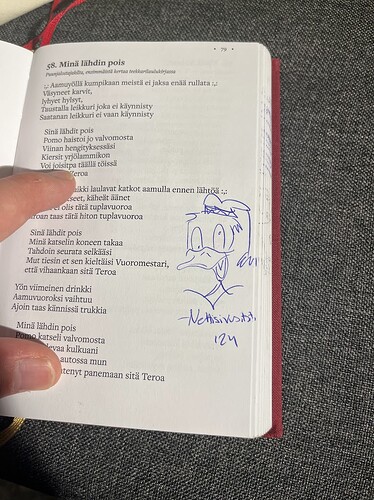 • 79 •
58. Minä lähdin pois
:,: Aamuyöllä kumpikaan meistä ei jaksa enää rullata :,:
Väsyneet karvit,
lyhyet hylsyt,
Taustalla leikkuri joka ei käynnisty
Saatanan leikkuri ei vaan käynnisty
Sinä lähdit pois
Pomo haistoi jo valvomosta
Viinan hengityksessäsi
Kiersit yrjölammikon
Voi joisitpa täällä töissä
Teroa
laulavat katkot aamulla ennen lähtöä :,:
käheät äänet
ei olis tätä tuplavuoroa
taas tätä hiton tuplavuoroa
Sinä lähdit pois
Minä katselin koneen takaa
Tahdoin seurata selkääsi
Mut tiesin et sen kieltäisi Vuoromestari,
että vihaankaan sitä Teroa
Yön viimeinen drinkki
Aamuvuoroksi vaihtuu
Ajoin taas kännissä trukkia
Minä lähdin pois
Pomo katseli valvomosta
kulkuani
autossa mun
panemaan sitä Teroa
124